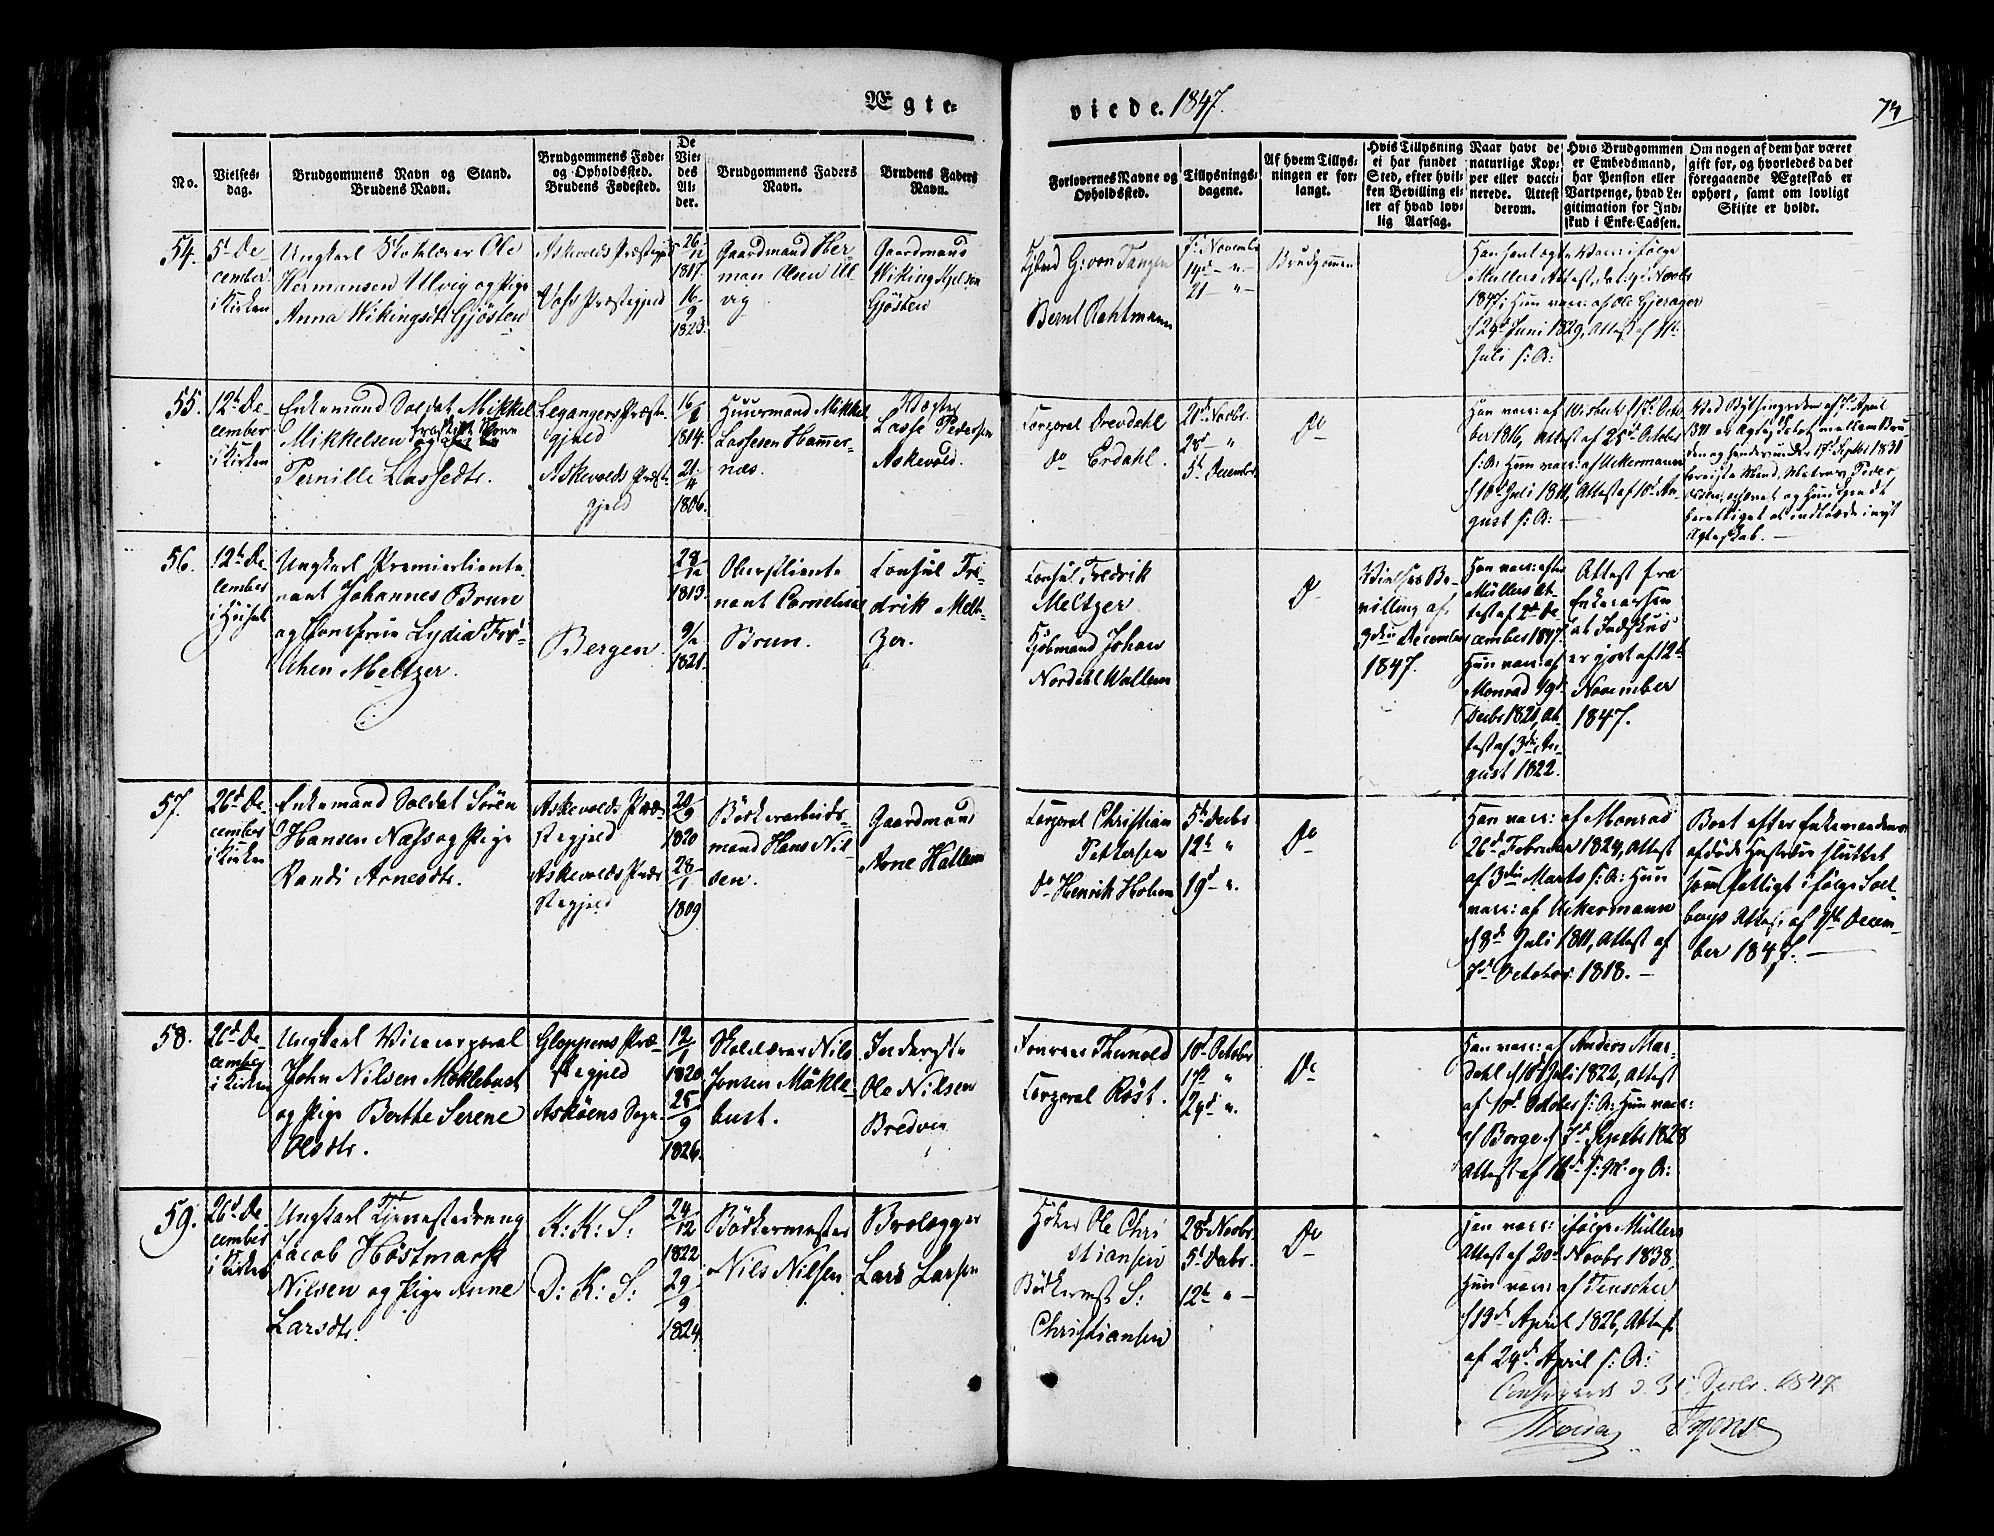 Ægte-
viede. 1847.
No.
Vielses-
dag.
Brudgommens Navn og Stand.
Brudens Navn.
Brudgommens Føde-
og Opholdssted.
Brudens Fødested.
De
Vie-
des
Al-
der.
Brudgommens Faders
Navn.
Brudens Faders
Navn.
Forlovernes Navne og
Opholdssted.
Tillysnings-
dagene.
Af hvem Tillys-
ningen er for-
langt.
Hvis Tillysning
ei har fundet
Sted, efter hvil-
ken Bevilling el-
ler af hvad lov-
lig Aarsag.
Naar havt de
naturlige Kop-
per eller vacci-
nerede. Attest
derom.
Hvis Brudgommen
er Embedsmand,
har Pension eller
Vartpenge, hvad Le-
gitimation for Ind-
skud i Enke-Cassen.
Om nogen af dem har været
gift før, og hvorledes da det
foregaaende Ægteskab er
ophørt, samt om lovligt
Skifte er holdt.
54.
5t De
cember
i Kirken
Ungkarl Skolelærer Ole
Hermansen Ulvig og Pige
Anna Wikingsdt. Gjösten
Askevolds Præstegjeld
Præstegjeld
26/12
1817.
16/9
1823.
Gaardmand Her-
man Olsen Ul-
vig
Gaardmand
Wiking
Gjösten
G: von Tangen
Bernt Rahtmann
7. Novembr
14d — "
21 — "
Brudgommen
Han havt ifølge
Müllers Attest
1847; Hun vacc: af
d 29d Juni 1829, Attest af
Juli s: A:
55.
12t De-
cember
i Kirken
Enkemand Soldat Mikkel
Mikkelsen
Pernille Lassedtr.
Legangers Præste-
gjeld
Askevolds Præste
gjeld
16/1
1814.
21/4
1806.
Huusmand Mikkel
Lassesen Hammer-
næs.
Lasse Pedersen
Askevold.
Corporal Drevdahl
do Erdahl.
21d Novbr.
28d "
5t Decembr
Do
Han vacc: af
ber 1816, Attest af 25d October
s: A: Hun vacc: af Ackermann
d 10d Juli 1811, Attest af 10d Au-
gust s: A: —
Ved
berettiget at indtræde i nyt
Ægteskab. —
56.
12t De-
cember
i Huset
Ungkarl Premierlieute-
nant Johannes Brun
og Jomfrue Lydia
Meltzer.
Bergen.
28/12
1813.
9/12
1821.
Oberstlieute
nant Cornelius
Brun.
Consul Fre-
drik Melt-
zer.
Consul Fredrik
Meltzer
Kjöbmand Johan
Nordahl Wallem
Do
Vielses Be-
villing af
3die December
1847.
Han vacc: efter
Müllers At-
test af 2d De
cember 1847.
Hun vacc: af
Monrad 19d
Decbr 1821, At-
test af 3die Au-
gust 1822.
Attest fra
Enkecassen
at Indskud
er gjort af 12t
November
1847.
57.
26d De-
cember
i Kirken
Enkemand Soldat Sören
Hansen Næss og Pige
Randi Arnesdtr.
Askevolds Præ-
stegjeld
Askevolds Præ
stegjeld
20/9
1820
28/1
1809
Bödkerarbeids-
mand Hans Nil-
sen.
Gaardmand
Arne Hatlem
Corporal Christian
Pettersen
do Henrik Holm
5t Decbr
12t "
19d — ".
Do
Han vacc: af Monrad
26d Februar 1824, Attest
af 3die Marts s: A: Hun
vacc: af Ackermann
d 8d Juli 1811, Attest af
7d October 1818. —
Boet efter Enkemandens
afdöde Hustrue sluttet
som fattigt ifølge
Attest af Decem-
ber 1847. —
58.
26d De-
cember
i Kirken
Ungkarl Vicecorporal
John Nilsen Möklebust
og Pige Berthe Serene
Olsdtr.
Gloppens Præ-
stegjeld
Asköens Sogn
12/1
1820
25/9
1826.
Skolelærer Nils
Jonsen Mökle-
bust.
Inderste
Ole Nilsen
Bredvig
Fourer Thunold
Corporal Röst.
10d Octobr
17d "
24d ".
Do
Han vacc: af Anders Mar-
dahl d 10d Juli 1822, Attest
af 10d October s: A: Hun vacc:
af Borge d 7d Septbr 1828
Attest af 16d s: M: og A:
59.
26d De-
cember
i Kirken
Ungkarl Tjenestedreng
Jacob Höstmark
Nilsen og Pige Anne
Larsdtr.
K: K: S:
D: K: S:
24/12
1822
29/9
1824.
Bödkermester
Nils Nilsen
Brolægger
Lars Larsen
Höker Ole Chri
stiansen
Bödkermst S:
Christiansen
28d Novbr.
5t Decbr.
12t " —
Do
Han vacc: ifølge Müllers
Attest af 20d Novbr 1838,
Hun vacc: af Teuscher
d 13d April 1826, Attest
af 29d April s: A:
d. 31 Decbr. 1847